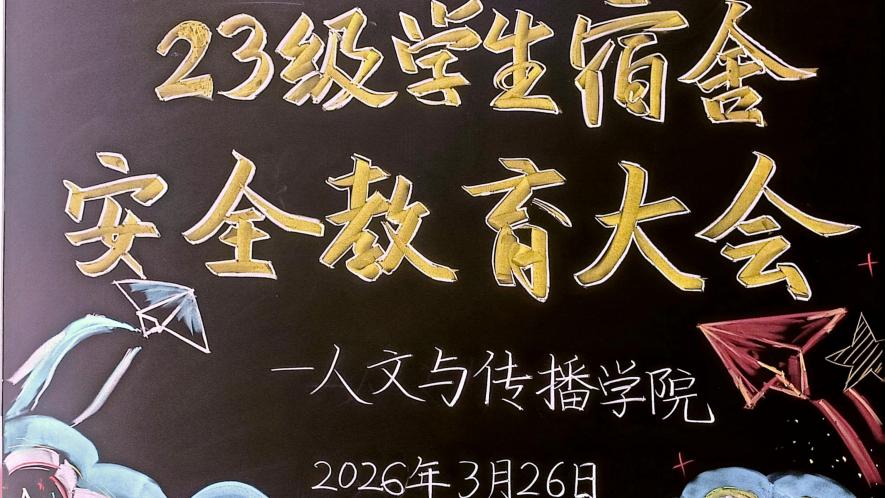 23级学生宿舍
安全教育大会
一人文与传播学院
2026年3月26日